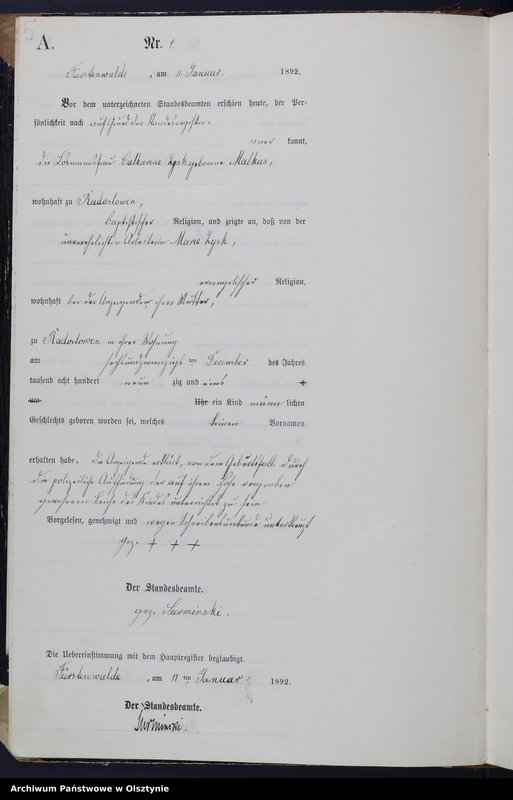 A.
Nr. 1.
Fürstenwalde, am 11. Januar 1892.
Vor dem unterzeichneten Standesbeamten erschien heute, der Per-
sönlichkeit nach auf Grund der Standesregister
aner kannt,
die Losmannsfrau Catharine Zysk geborene Malkus,
wohnhaft zu Radostowen,
baptistischer Religion, und zeigte an, daß von der
unverehelichten Arbeiterin Marie Zysk,
evangelischer Religion,
wohnhaft bei der Anzeigenden ihrer Mutter,
zu Radostowen in ihrer Wohnung
am sechsundzwanzigs ten December des Jahres
tausend acht hundert neun zig und eins
um Uhr ein Kind männ lichen
Geschlechts geboren worden sei, welches keinen Vornamen
erhalten habe. Die Anzeigende erklärt, von dem Geburtsfall durch
die polizeiliche Auffindung der auf ihrem Hofe vergraben
gewesenen Leiche des Kindes unterrichtet zu sein
Vorgelesen, genehmigt und wegen Schreibensunkunde unterkreuzt
gez. + + +
Der Standesbeamte.
gez. Surminski.
Die Uebereinstimmung mit dem Hauptregister beglaubigt.
Fürstenwalde, am 11 ten Januar 1892.
Der Standesbeamte.
Surminski.
Archiwum Państwowe w Olsztynie